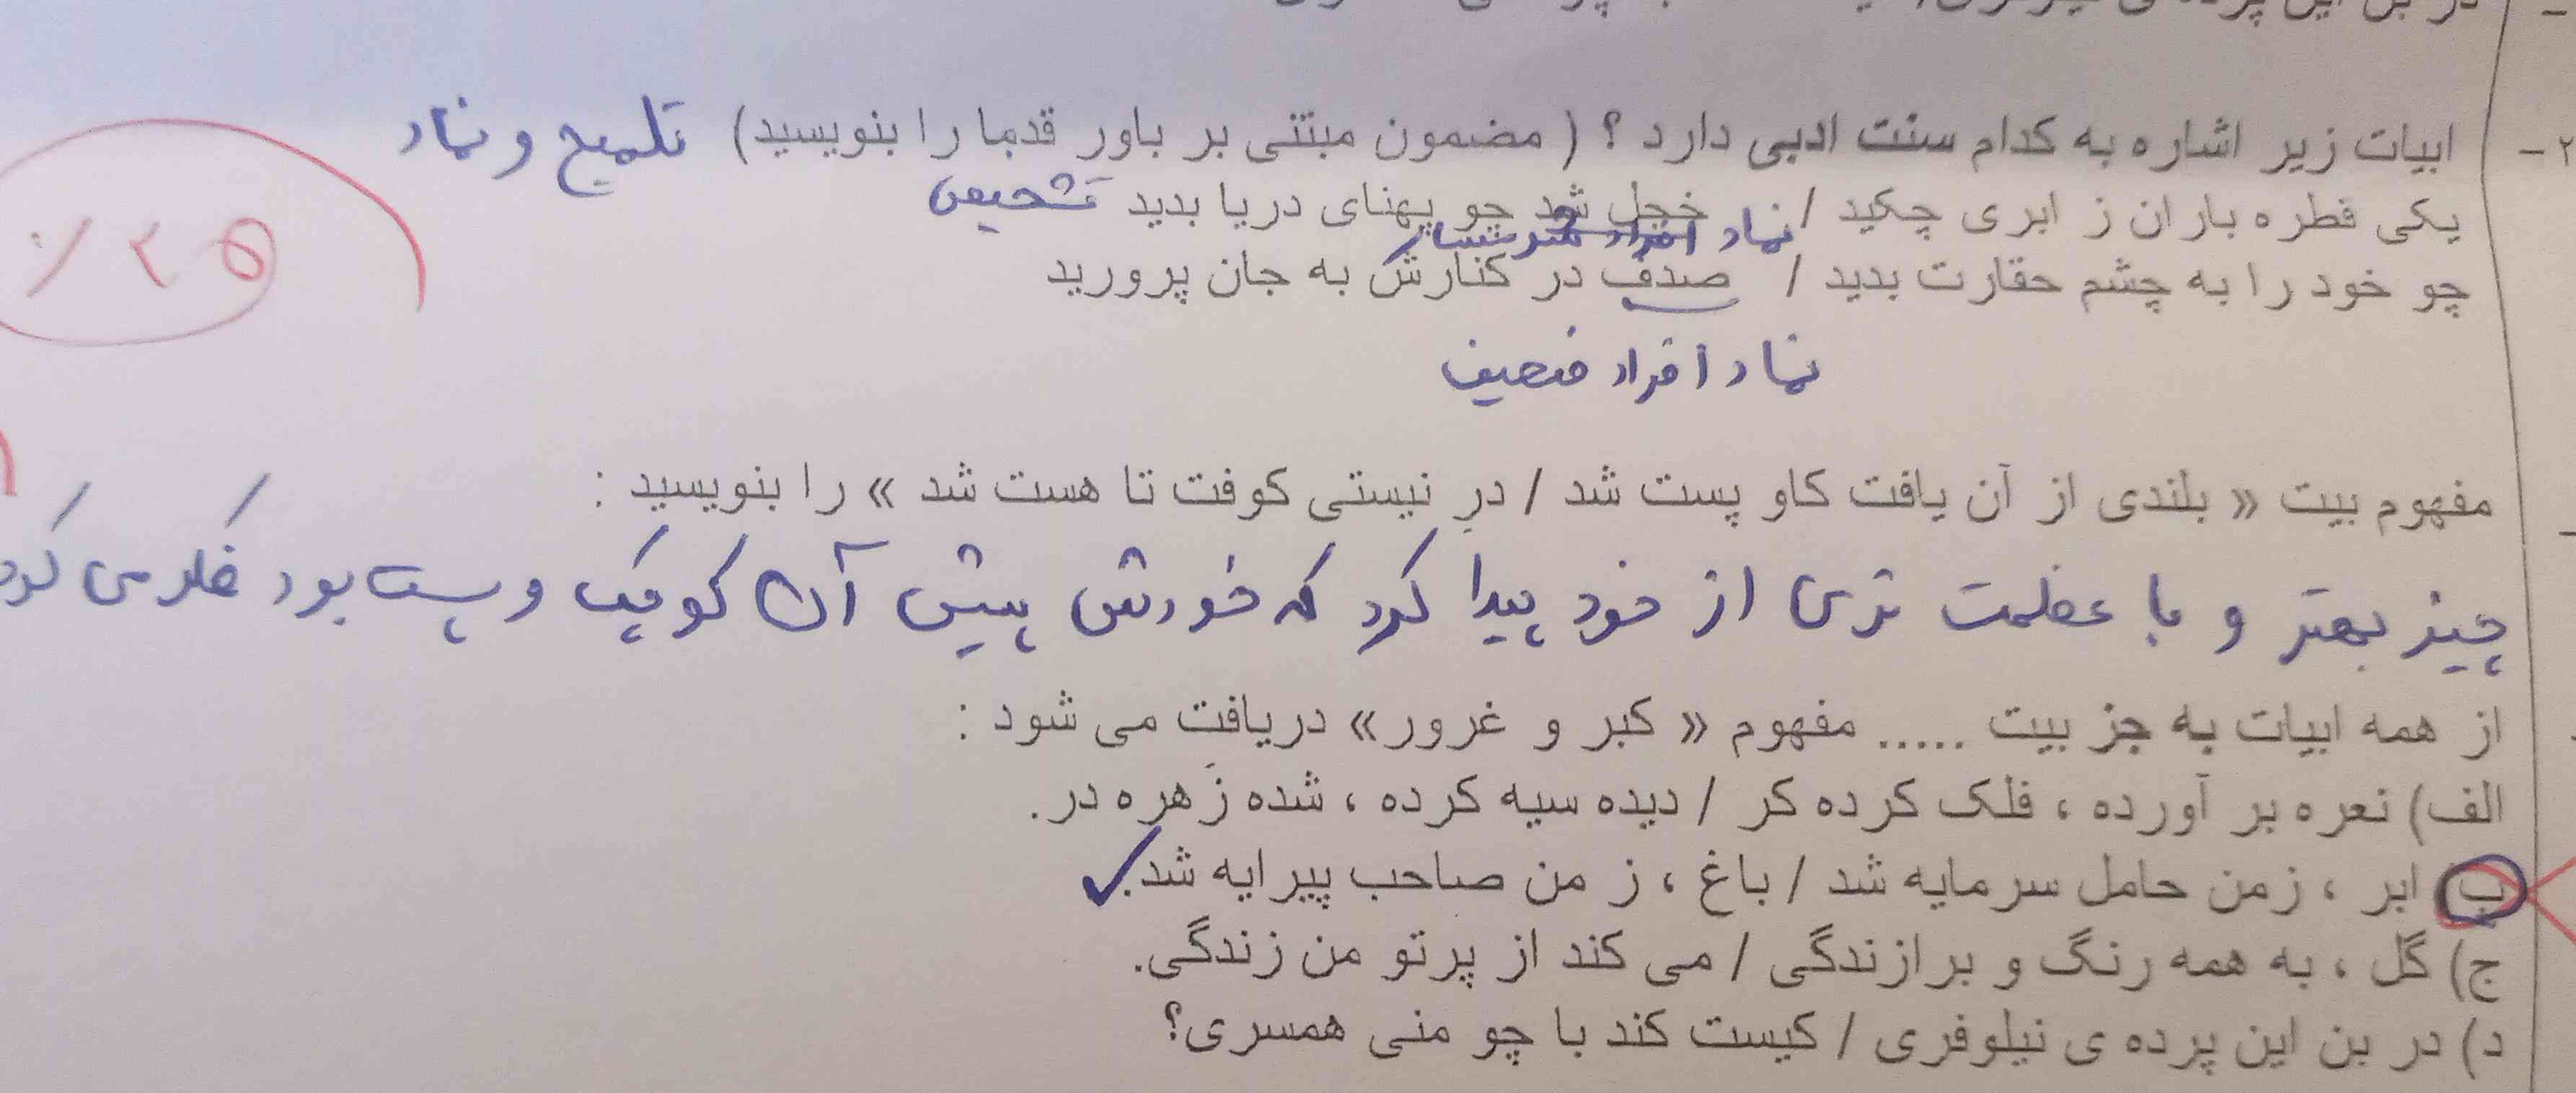 ۲- ابیات زیر اشاره به کدام سنت ادبی دارد ؟ ( مضمون مبتنی بر باور قدما را بنویسید) تلمیح و نماد
یکی قطره باران ز ابری چکید / خجل شد چو پهنای دریا بدید تشخیص
نماد افراد
چو خود را به چشم حقارت بدید / صدف در کنارش به جان پرورید
۲۵٪
نماد افراد ضعیف
مفهوم بیت « بلندی از آن یافت کاو پست شد / درِ نیستی کوفت تا هست شد » را بنویسید :
چیز بهتر و با عظمت تری از خود پیدا کرد که خودش پیش آن کوچک و پست بود فکر می کرد
از همه ابیات به جز بیت ..... مفهوم « کبر و غرور» دریافت می شود :
الف) نعره بر آورده ، فلک کرده کر / دیده سیه کرده ، شده زَهره در.
ب) ابر ، زمن حامل سرمایه شد / باغ ، ز من صاحب پیرایه شد.
ج) گل ، به همه رنگ و برازندگی / می کند از پرتو من زندگی.
د) در بن این پرده ی نیلوفری / کیست کند با چو منی همسری؟